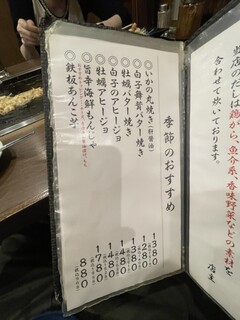 季節のおすすめ
◎いかの丸焼き(肝醤油) 1380
◎白子舞茸バター焼き 1380
◎牡蠣バター焼き 1280
◎白子のアヒージョ 1480
◎牡蠣のアヒージョ 1480
◎旨辛海鮮もんじゃ 1780
◎鉄板あんこ巻 880
当店のだしは
合わせて炊いております。
鶏がら、魚介系、香味
野菜などの素材を
店主